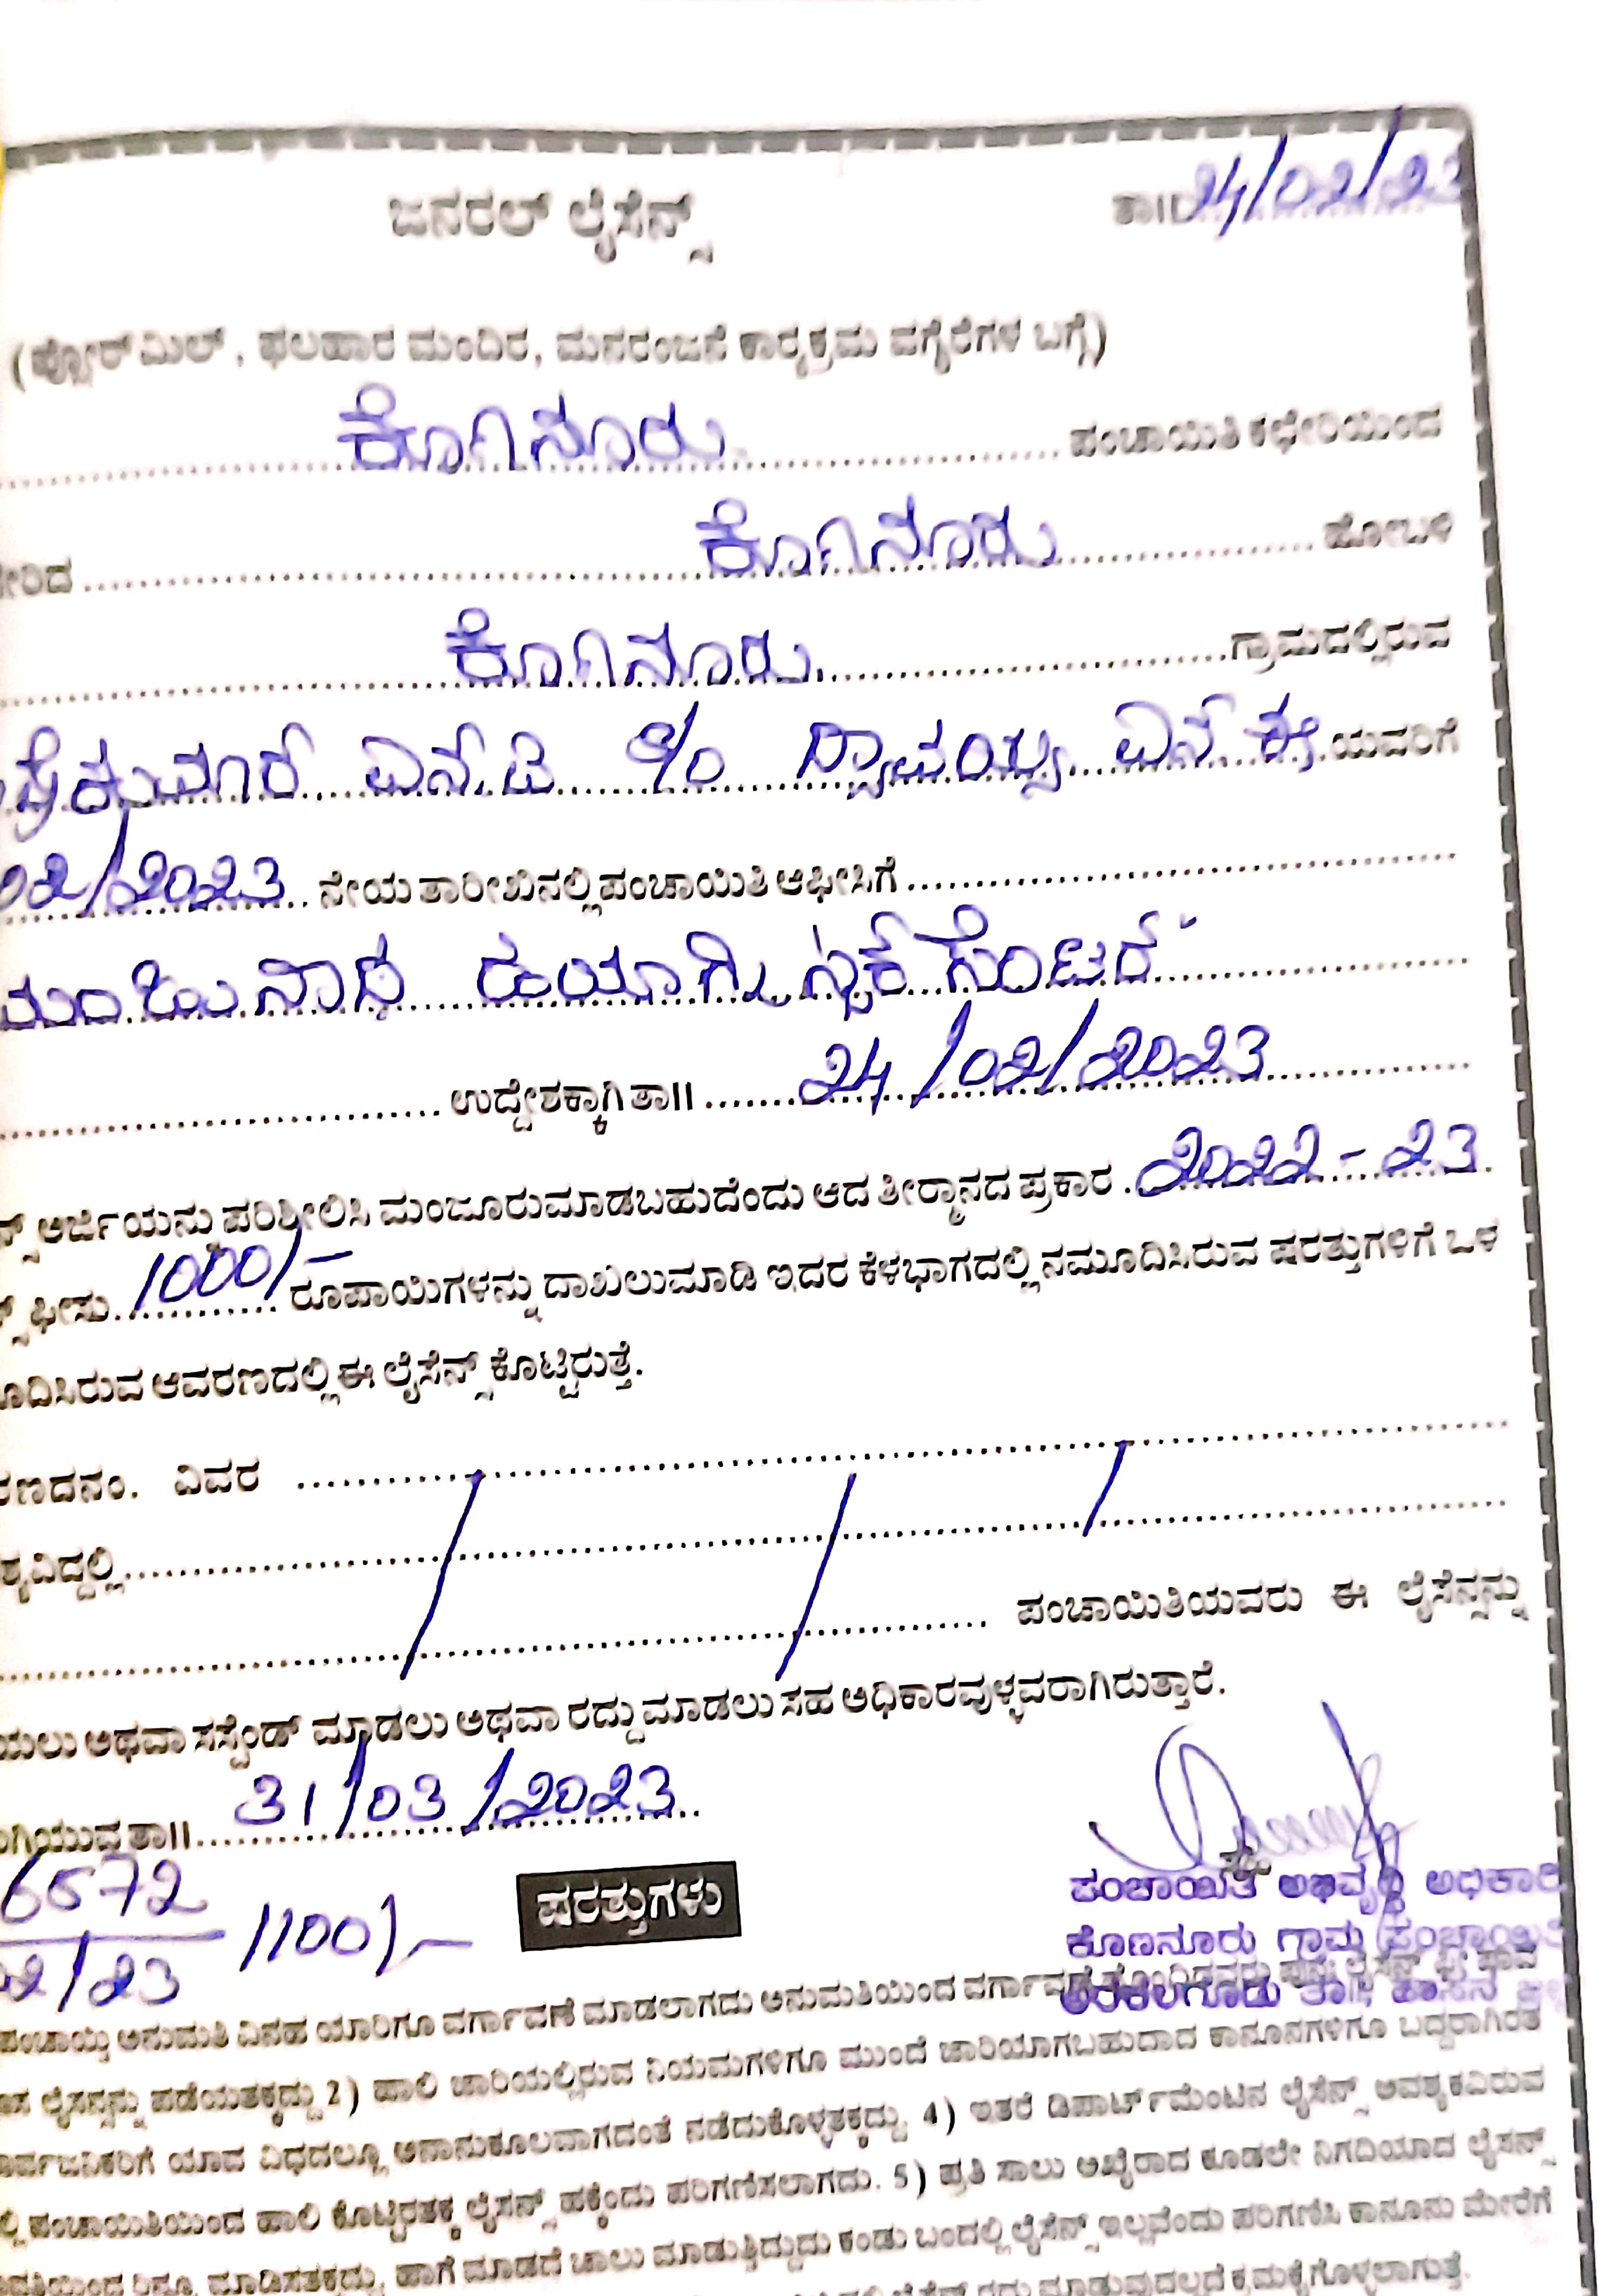 ಜನರಲ್ ಲೈಸೆನ್ಸ್
ತಾ॥ 24/02/23
(ಫ್ಲೋರ್ ಮಿಲ್, ಫಲಹಾರ ಮಂದಿರ, ಮನರಂಜನೆ ಕಾರ್‍ಯಕ್ರಮ ವಗೈರೆಗಳ ಬಗ್ಗೆ)
ಕೊಣನೂರು ಪಂಚಾಯಿತಿ ಕಛೇರಿಯಿಂದ
ಕೊಣನೂರು ಹೋಬಳಿ
ಕೊಣನೂರು ಗ್ರಾಮದಲ್ಲಿರುವ
ಎನ್. ಯವರಿಗೆ
02/2023 ನೇಯ ತಾರೀಖಿನಲ್ಲಿ ಪಂಚಾಯಿತಿ ಆಫೀಸಿಗೆ
ಮಂಜುನಾಥ ಸೆಂಟರ್
ಉದ್ದೇಶಕ್ಕಾಗಿ ತಾ॥ 24/02/2023
ಅರ್ಜಿಯನ್ನು ಪರಿಶೀಲಿಸಿ ಮಂಜೂರುಮಾಡಬಹುದೆಂದು ಆದ ತೀರ್ಮಾನದ ಪ್ರಕಾರ 2022-23
ಫೀಸು 1000/- ರೂಪಾಯಿಗಳನ್ನು ದಾಖಲುಮಾಡಿ ಇದರ ಕೆಳಭಾಗದಲ್ಲಿ ನಮೂದಿಸಿರುವ ಷರತ್ತುಗಳಿಗೆ ಒಳ
ದಿಸಿರುವ ಆವರಣದಲ್ಲಿ ಈ ಲೈಸೆನ್ಸ್ ಕೊಟ್ಟಿರುತ್ತೆ.
ರಣದ ನಂ. ವಿವರ
ವಿದ್ದಲ್ಲಿ
ಪಂಚಾಯಿತಿಯವರು ಈ ಲೈಸೆನ್ಸನ್ನು
ಯಲು ಅಥವಾ ಸಸ್ಪೆಂಡ್ ಮಾಡಲು ಅಥವಾ ರದ್ದು ಮಾಡಲು ಸಹ ಅಧಿಕಾರವುಳ್ಳವರಾಗಿರುತ್ತಾರೆ.
ಗಿಯುವ ತಾ॥ 31/03/2023
6572
2/23 1100/-
ಷರತ್ತುಗಳು
ಪಂಚಾಯಿತಿ ಅಭಿವೃದ್ಧಿ ಅಧಿಕಾರಿ
ಕೊಣನೂರು ಗ್ರಾಮ ಪಂಚಾಯಿತಿ
ಅರಕಲಗೂಡು ತಾ||, ಹಾಸನ
ಪಂಚಾಯ್ತಿ ಅನುಮತಿ ವಿನಹ ಯಾರಿಗೂ ವರ್ಗಾವಣೆ ಮಾಡಲಾಗದು ಅನುಮತಿಯಿಂದ ವರ್ಗಾವಣೆ
ಲೈಸನ್ಸನ್ನು ಪಡೆಯತಕ್ಕದ್ದು 2) ಹಾಲಿ ಜಾರಿಯಲ್ಲಿರುವ ನಿಯಮಗಳಿಗೂ ಮುಂದೆ ಜಾರಿಯಾಗಬಹುದಾದ ಕಾನೂನಗಳಿಗೂ ಬದ್ದರಾಗಿರತ
ರ್ವಜನಿಕರಿಗೆ ಯಾವ ವಿಧದಲ್ಲೂ ಅನಾನುಕೂಲವಾಗದಂತೆ ನಡೆದುಕೊಳ್ಳತಕ್ಕದ್ದು. 4) ಇತರೆ ಡಿಪಾರ್ಟ್‌ಮೆಂಟಿನ ಲೈಸೆನ್ಸ್ ಅವಶ್ಯಕವಿರುವ
ಲ್ಲಿ ಪಂಚಾಯಿತಿಯಿಂದ ಹಾಲಿ ಕೊಟ್ಟಿರತಕ್ಕ ಲೈಸನ್ಸ್ ಹಕ್ಕೆಂದು ಪರಿಗಣಿಸಲಾಗದು. 5) ಪ್ರತಿ ಸಾಲು ಅಖೈರಾದ ಕೂಡಲೇ ನಿಗದಿಯಾದ ಲೈಸನ್ಸ್
ಮಾಡಿಸತಕ್ಕದ್ದು, ಹಾಗೆ ಮಾಡದೆ ಚಾಲು ಮಾಡುತ್ತಿದ್ದುದು ಕಂಡು ಬಂದಲ್ಲಿ ಲೈಸೆನ್ಸ್ ಇಲ್ಲವೆಂದು ಪರಿಗಣಿಸಿ ಕಾನೂನು ಮೇರೆಗೆ